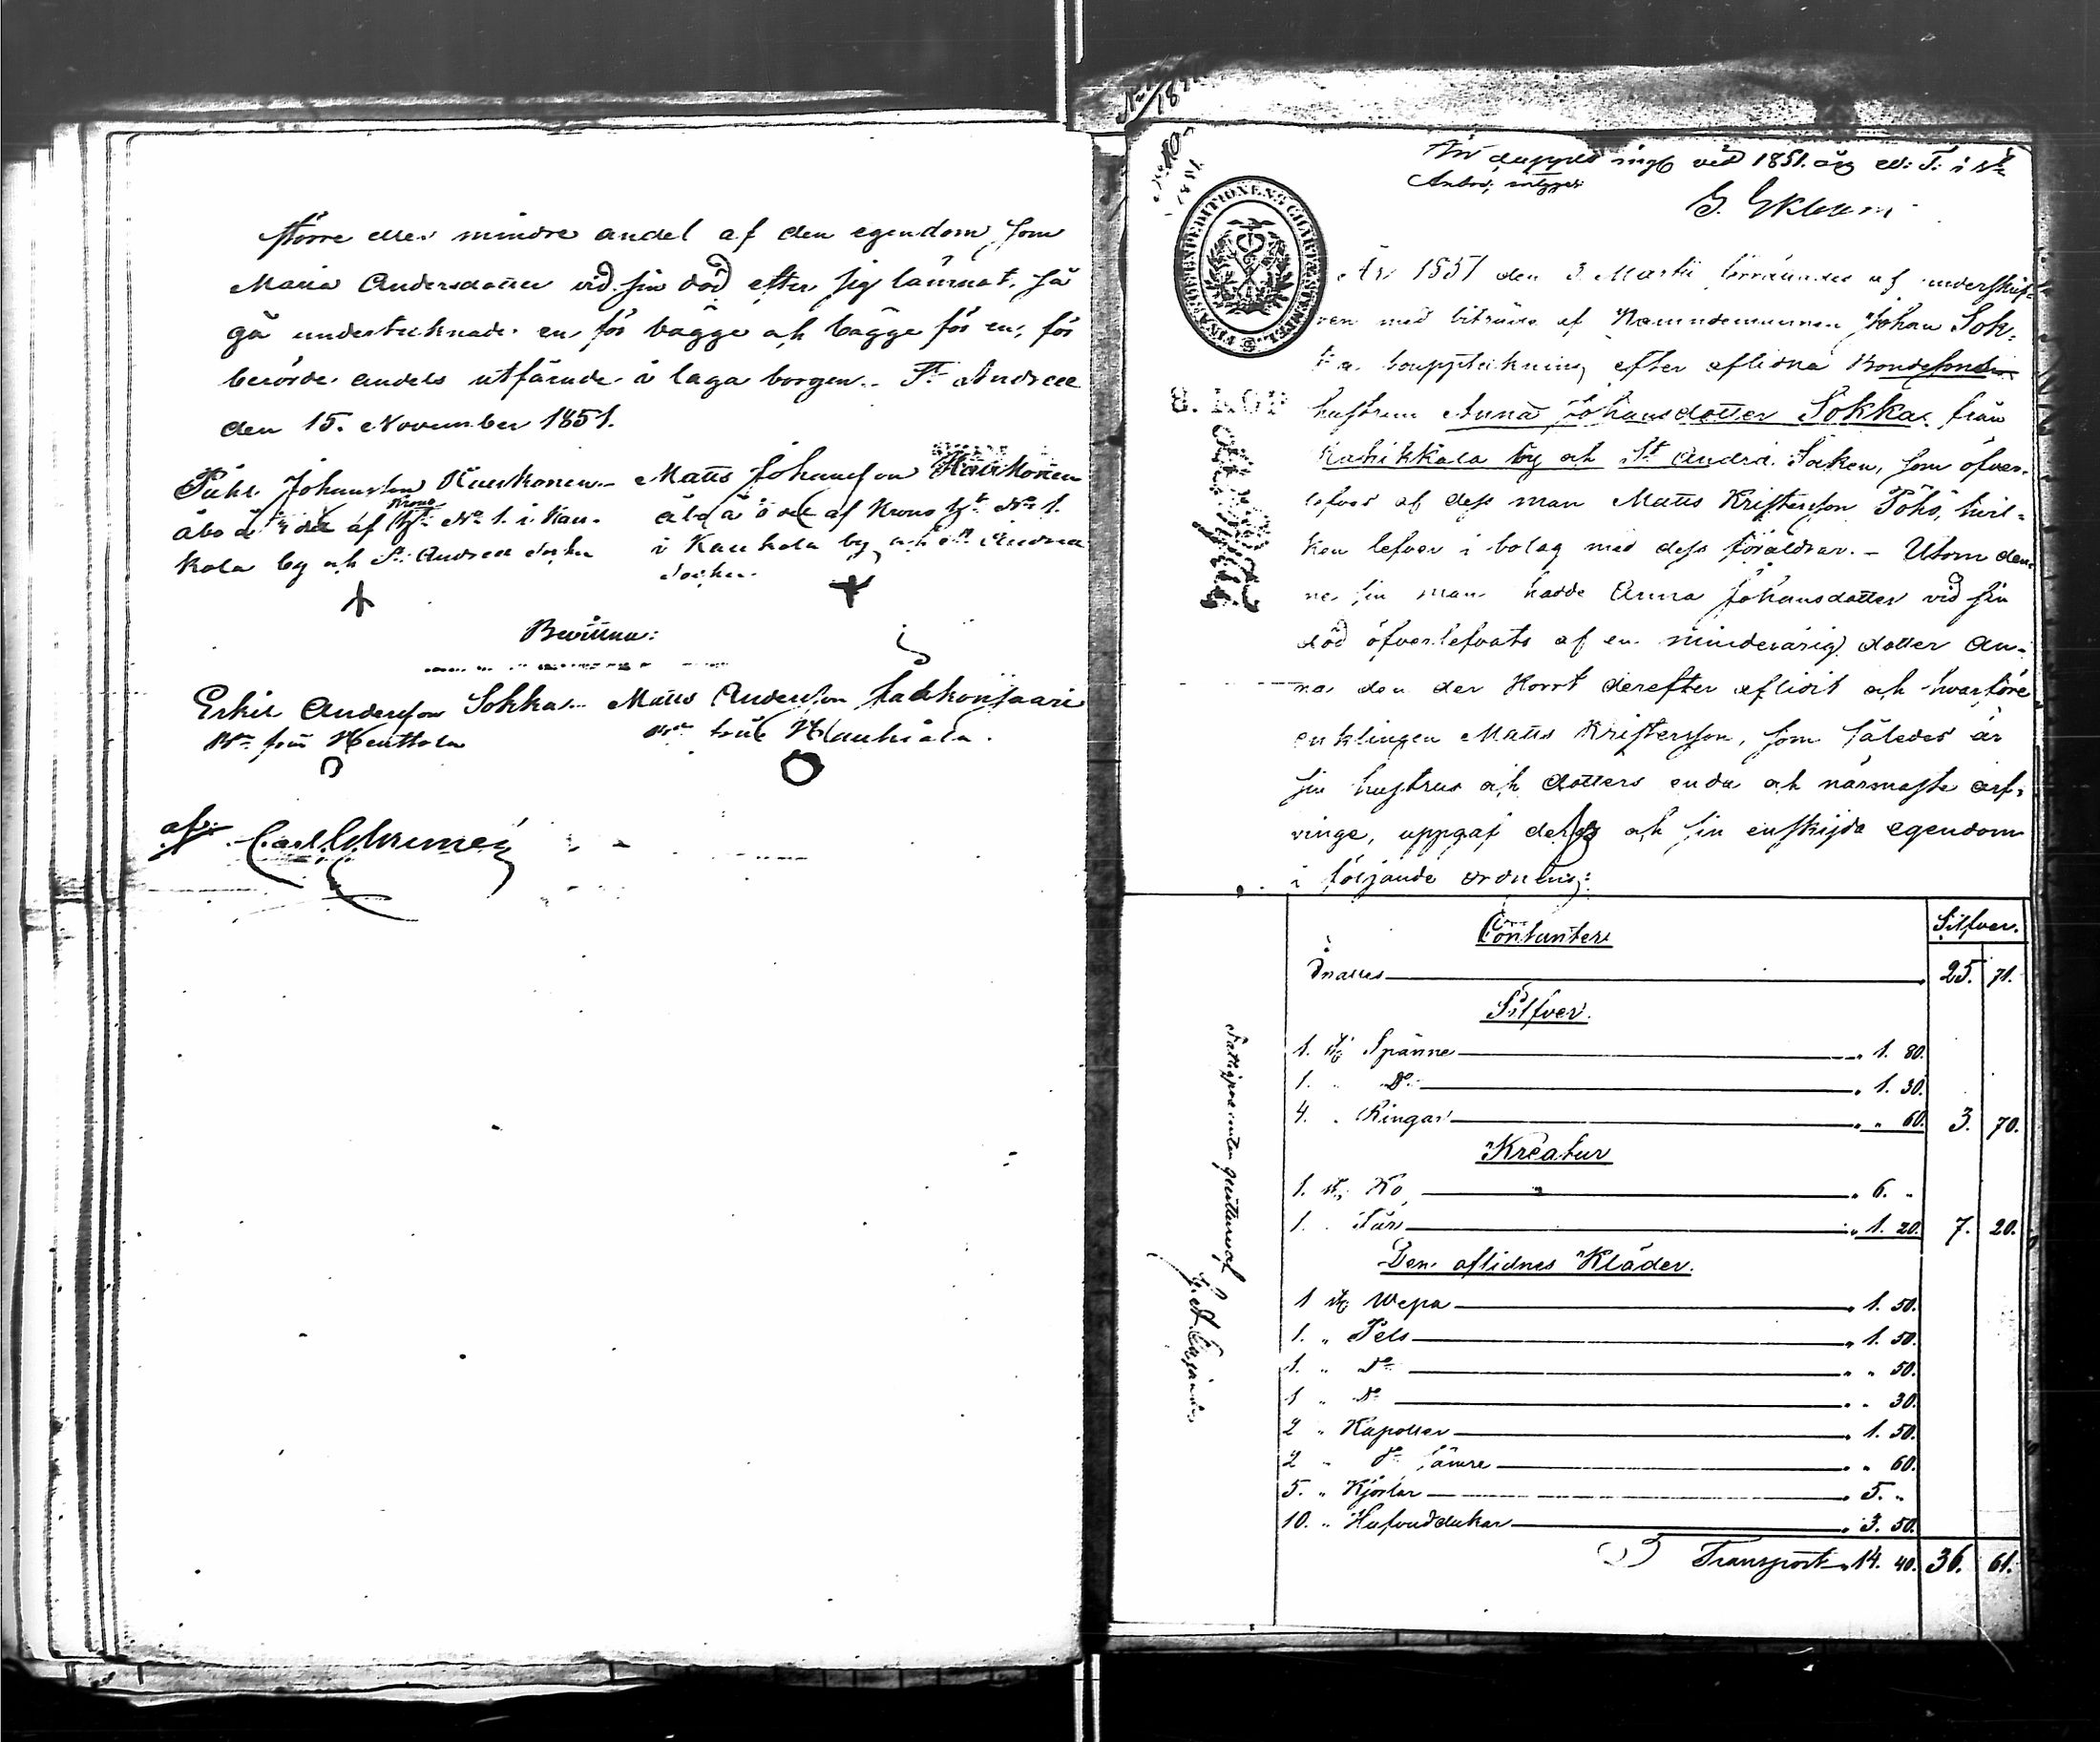 större eller mindre andel af den egendom som
Maria Andersdotter vid sin död efter sig lämnat, så
gå undertecknade en för bägge och bägge för en, för
berörde andels utfående i laga borgen. St Andreæ
den 15. November 1851.
Påhl Johansson Kaukonen Matts Johansson Kaukonen
åbo å ½ del af Krono Ht. No 1. i Kau- åbo å ½ del af Krono Ht. No 1.
kola by och St. Andreæ Socken i Kaukola by och St. Andreæ
Socken
Bevittna:
Erkil Andersson Sokka Matts Andersson
Bn. från Bn. från
af: Carl
vid 1851. års
G. Eklund
FINANCEEXPEDITIONENS CHARTÆSTEMPEL
År 1851 den 3 Martii förrättades af underskrif-
ven med biträde af Nämndemannen Johan Sok-
ka bouppteckning efter aflidna Bonde
8. KOP
hustrun Anna Johansdotter Sokka från
Kahikkala by och St. Andreæ Socken, som öfver-
lefves af dess man Matts Kristersson Pöhö, hvil-
ken lefver i bolag med dess föräldrar. – Utom den-
ne sin man hade Anna Johansdotter vid sin
död öfverlefvats af en minderårig dotter An-
na, den der kort derefter aflidit och hvarföre
enklingen Matts Kristersson, som således är
sin hustrus och dotters enda och närmaste arf-
vinge, uppgaf deras och sin enskijda egendom
i följande ordning:
Silfver.
Contanter
Inalles 25. 71.
Silfver.
1. st. Spänne 1. 80.
1. " Do 1. 30.
4. " Ringar " 60. 3. 70.
Kreatur
1. st. Ko 6. "
1. " Får 1. 20. 7. 20.
Den aflidnes Kläder.
1 st. Wepa 1. 50.
1. " Pels 1. 50.
1. " Do " 50.
1 " Do " 30.
2 " Kapotter 1. 50.
2 " Do sämre " 60.
5. " Kjortlar 5. "
10. " Hufvuddukar 3. 50.
Transport 14. 40. 36. 61.
Fattigprocenten qvitteras af